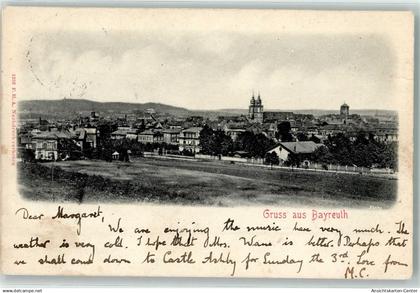 Gruss aus Bayreuth
Dear Margaret, We are enjoying the music here very much. The
weather is very cold. I hope that Mrs. Wane is better. Perhaps
we shall come down to Castle Ashby for Sunday the 3rd. Love from
M. C.
www.ansichtskarten-center.de © Ansichtskarten-Center